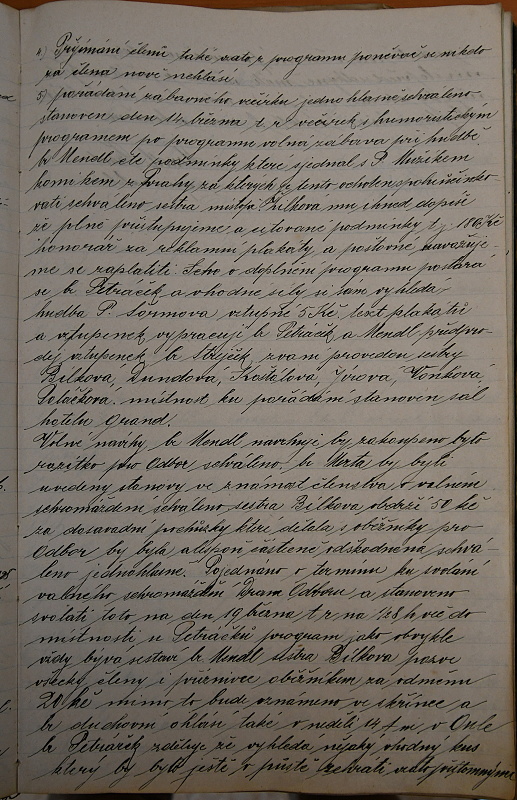 4) Přijímání členů také zato z programu poněvač se nikdo
za člena nově nehlásí.
5) pořádání zábavného večírku jednohlasně schváleno
stanoven den 14 března t. r. večírek s humoristickým
programem po programu volná zábava při hudbě
br Mendl čte podmínky které sjednal s P.
komikem z Prahy, za kterých je tento ochoten
schváleno sestra místoj. Žilkova mu ihned dopíše
že plně přistupujeme a citované podmínky t.j. 180 Kč
honorář za reklamní plakáty a poštovné zavazuje-
me se zaplatiti. Seho o doplnění programu postará
se br. Petráček a vhodné síly si sám vyhledá,
hudba P. Šormova vstupné 5 Kč, text plakátů
a vstupenek vypracují br Petráček a Mendl předpro-
dej vstupenek br. Stejček, zvaní provedou sestry
Bílková, Dundová, Košťálová, Jírova, Vonková
Poláčkova. místnost ku pořádání stanoven sál
hotelu Grand.
Volné návrhy br Mendl navrhuje by zakoupeno bylo
razítko pro Odbor schváleno. br Merta by byli
uvedeny stanovy ve známost členstva o valném
schromáždění schváleno sestra Bílkova obdrží 50 kč
za dosavadní pochůzky které dělala s oběžníky pro
Odbor by byla alespoň částečně odškodněna schvá-
leno jednohlasně. Pojednáno o termínu ku svolání
valného schromáždění Dram Odboru a stanoveno
svolati toto na den 19 března t r na 1/28 h več do
místností u Petráčků program jako obvykle
vždy bývá sestaví br Mendl sestra Bílkova pozve
všecky členy i příznivce oběžníkem za odměnu
20 kč mimo to bude oznámeno ve skřínce a
br duchovní ohlásí také v neděli 14 t m. v
br Petráček zděluje že vyhledá nějaký vhodný kus
který by byl ještě v postě sehráti vzato přítomnými